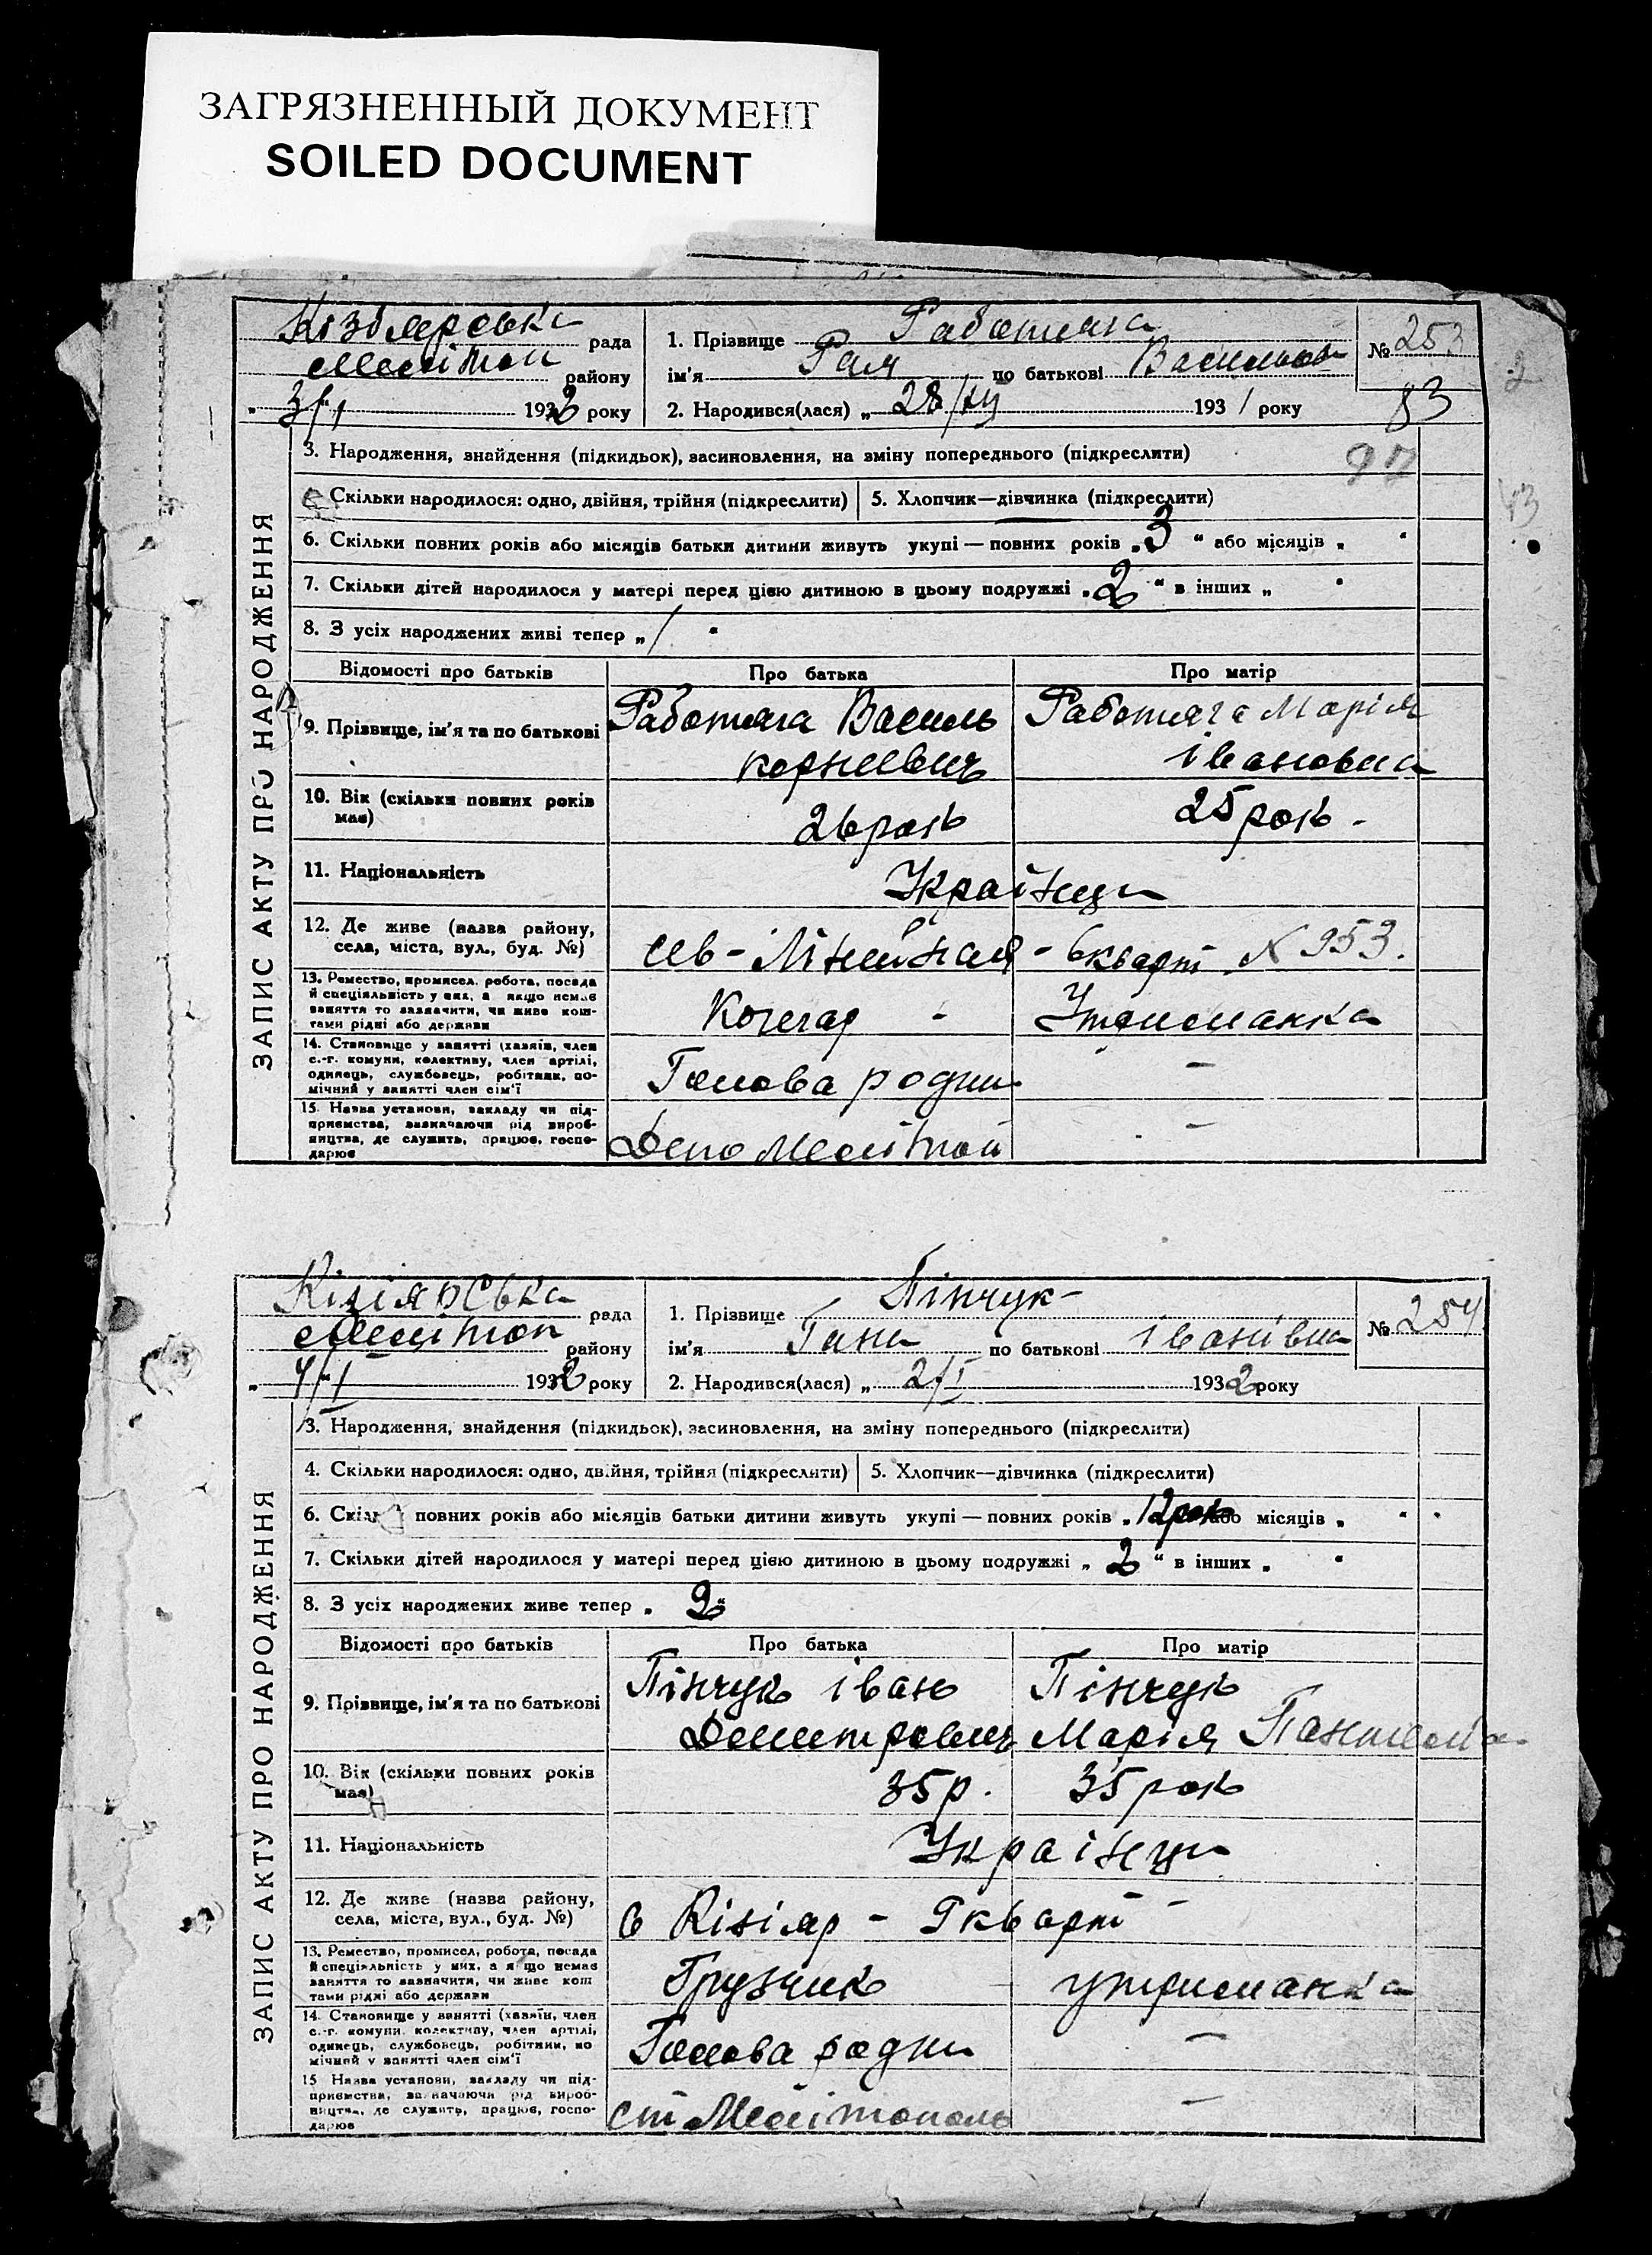 ЗАГРЯЗНЕННЫЙ ДОКУМЕНТ
SOILED DOCUMENT
Кізіярська рада
Мелітоп району
„ 3/I 1932 року
1. Прізвище Работяга
ім'я Рая по батькові Васильов
2. Народився(лася) „ 28/XII 1931 року
№ 253
83
97
2
ЗАПИС АКТУ ПРО НАРОДЖЕННЯ
3. Народження, знайдення (підкидьок), засиновлення, на зміну попереднього (підкреслити)
4. Скільки народилося: одно, двійня, трійня (підкреслити) 5. Хлопчик—дівчинка (підкреслити)
6. Скільки повних років або місяців батьки дитини живуть укупі — повних років „ 3 “ або місяців „ “
7. Скільки дітей народилося у матері перед цією дитиною в цьому подружжі „ 2 “ в інших „ “
8. З усіх народжених живі тепер „ 1 “
Відомості про батьків Про батька Про матір
9. Прізвище, ім'я та по батькові Работяга Василь Работяга Марія
корнієвич івановна
10. Вік (скільки повних років має) 26 рокь 25 рокь -
11. Національність Українци
12. Де живе (назва району, села, міста, вул., буд. №) сев - Лінейная - 6 кварт N 953.
13. Ремество, промисел, робота, посада й спеціяльність у них, а якщо немає заняття то зазначити, чи живе коштами рідні або держави Кочегар - Утриманка
14. Становище у занятті (хазяїн, член с.-г. комуни, колективу, член артілі, одинець, службовець, робітник, помічний у занятті член сім'ї Голова родин —
15. Назва установи, закладу чи підприємства, зазначаючи рід виробництва, де служить, працює, господарює Депо Мелітоп —
Кізіярська рада
Мелітоп району
„ 4/I 1932 року
1. Прізвище Пінчук -
ім'я Гана по батькові іванівна
2. Народився(лася) „ 2/I 1932 року
№ 254
ЗАПИС АКТУ ПРО НАРОДЖЕННЯ
3. Народження, знайдення (підкидьок), засиновлення, на зміну попереднього (підкреслити)
4. Скільки народилося: одно, двійня, трійня (підкреслити) 5. Хлопчик—дівчинка (підкреслити)
6. Скільки повних років або місяців батьки дитини живуть укупі — повних років „ 12 рокь або місяців „ “
7. Скільки дітей народилося у матері перед цією дитиною в цьому подружжі „ 2 “ в інших „ “
8. З усіх народжених живе тепер „ 2 “
Відомості про батьків Про батька Про матір
9. Прізвище, ім'я та по батькові Пінчукь івань Пінчукь
Дмитровичь Марія
10. Вік (скільки повних років має) 35 р. 35 рокь
11. Національність Українци
12. Де живе (назва району, села, міста, вул., буд. №) в Кізіяр - 9 кварт -
13. Ремество, промисел, робота, посада й спеціяльність у них, а якщо немає заняття то зазначити, чи живе коштами рідні або держави Грузчикь - утриманка
14. Становище у занятті (хазяїн, член с.-г. комуни, колективу, член артілі, одинець, службовець, робітник, помічний у занятті член сім'ї Голова родин —
15. Назва установи, закладу чи підприємства, зазначаючи рід виробництва, де служить, працює, господарює ст Мелітополь —